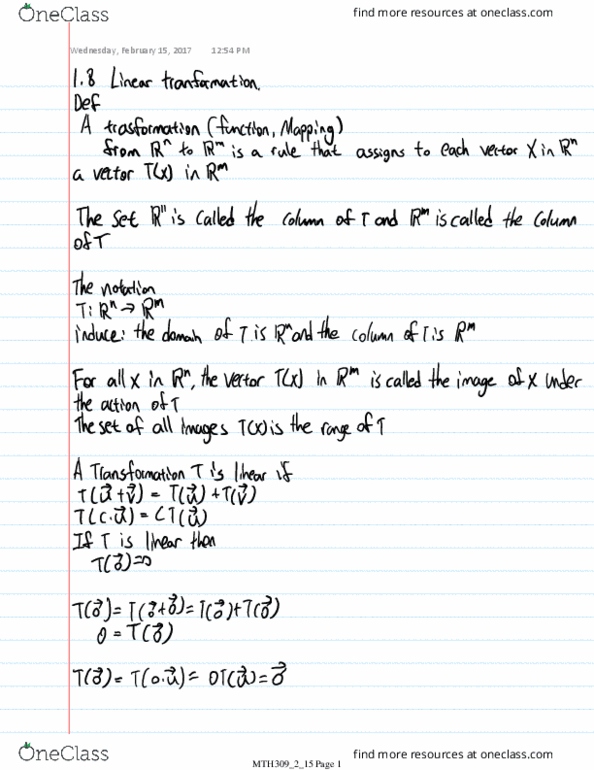 OneClass
find more resources at oneclass.com
Wednesday, february 15, 2017 12:54 PM
1.8 Linear tranformation.
Def
A trasformation (function, Mapping)
from Rⁿ to Rᵐ is a rule that assigns to each vector X in Rⁿ
a vector T(x) in Rᵐ
The set Rⁿ is called the column of T and Rᵐ is called the column
of T
The notation
T: Rⁿ → Rᵐ
induce: the domain of T is Rⁿ and the column of T is Rᵐ
For all x in Rⁿ, the vector T(x) in Rᵐ is called the image of x under
the action of T
The set of all images T(x) is the range of T
A Transformation T is linear if
T(u⃗+v⃗) = T(u⃗)+T(v⃗)
T(c.u⃗) = CT(u⃗)
If T is linear then
T(o⃗)=0
T(o⃗)= T(o⃗+o⃗)= T(o⃗)+T(o⃗)
0 = T(o⃗)
T(o⃗)= T(0.u⃗)= 0T(u⃗)=o⃗
OneClass
find more resources at oneclass.com
MTH309_2_15 Page 1